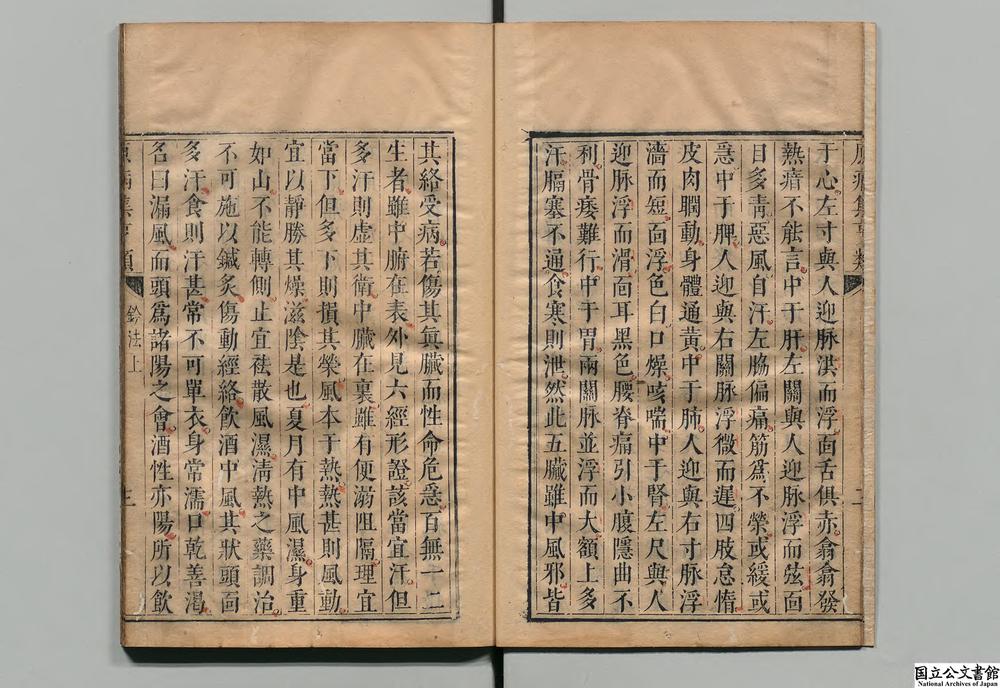 于心左寸與人迎脉洪而浮面舌俱赤翕翕發
熱瘖不能言中于肝左關與人迎脉浮而弦面
目多靑惡風自汗左脇偏痛筋爲不榮或緩或
急中于脾人迎與右關脉浮微而遲四肢怠惰
皮肉膶動身體通黃中于肺人迎與右寸脉浮
濇而短面浮色白口燥咳喘中于腎左尺與人
迎脉浮而滑面耳黑色腰脊痛引小腹隱曲不
利骨痿難行中于胃兩關脉並浮而大額上多
汗膈塞不通食寒則泄然此五臟雖中風邪皆
其絡受病若傷其眞臟而性命危急百無一二
生者雖中腑在表外見六經形證該當宜汗但
多汗則虛其衛中臟在裏雖有便溺阻隔理宜
當下但多下則損其榮風本于熱熱甚則風動
宜以靜勝其燥滋陰是也夏月有中風濕身重
如山不能轉側止宜祛散風濕淸熱之藥調治
不可施以鍼炙傷動經絡飮酒中風其狀頭面
多汗食則汗甚常不可單衣身常濡口乾善渴
名曰漏風而頭爲諸陽之會酒性亦陽所以飮
鈐法上
三
国立公文書館
National Archives of Japan